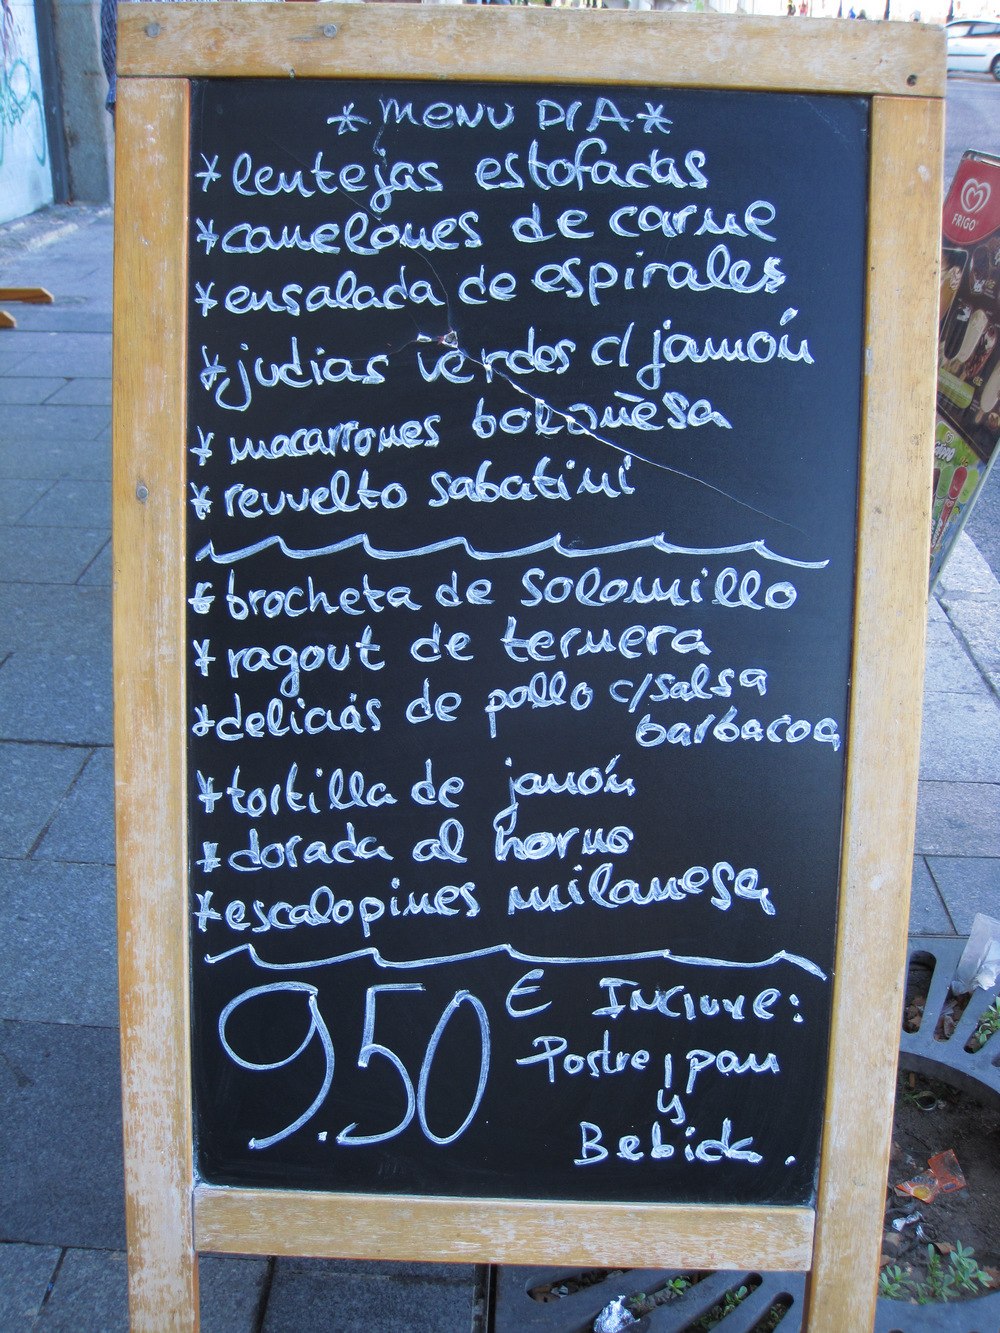 *MENU DIA*
*lentejas estofadas
*canelones de carne
*ensalada de espirales
*judias verdes c/ jamón
*macarrones boloñesa
*revuelto sabatini
*brocheta de solomillo
*ragout de ternera
*delicias de pollo c/salsa
barbacoa
*tortilla de jamón
*dorada al horno
*escalopines milanesa
9.50 € Incluye:
Postre, pan
y
Bebida.
FRIGO